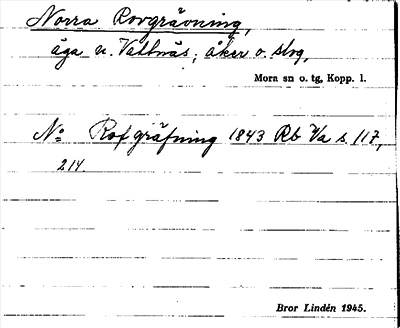 Norra Rovgrävning,
äga n. Vattnäs; åker o. skog,
Mora sn o. tg, Kopp. l.
No Rofgräfning 1843 Rb Va s. 117,
214.
Bror Lindén 1945.